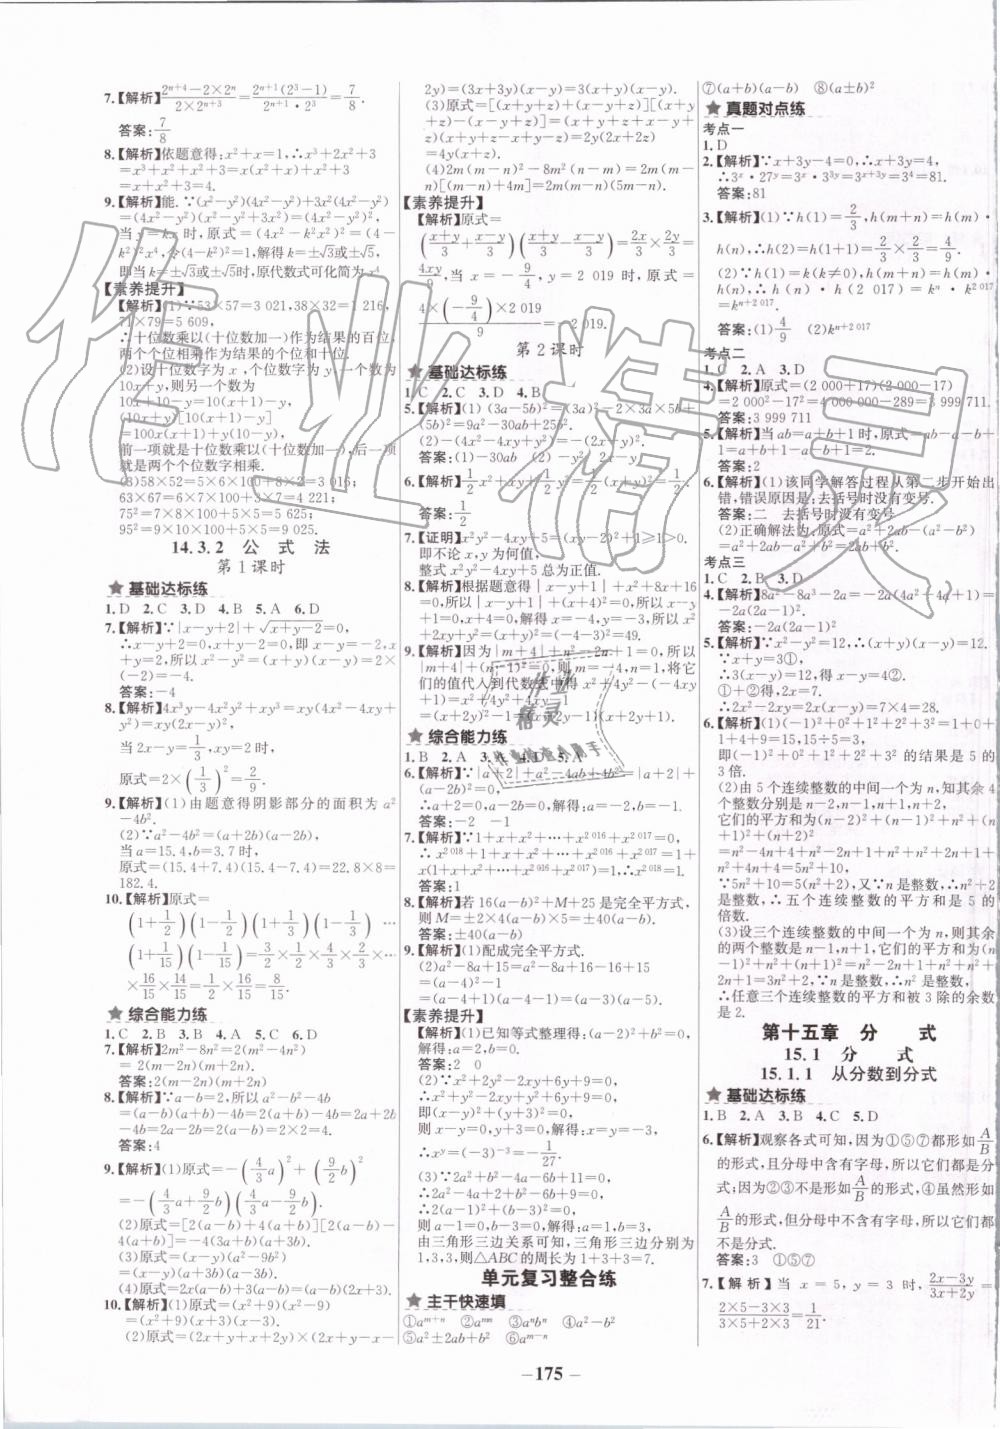 7.【解析】(2ⁿ⁺⁴−2×2ⁿ)/(2×2ⁿ⁺³)=2ⁿ⁺¹(2³−1)/(2ⁿ⁺¹·2³)=7/8.
答案:7/8
8.【解析】依题意得:x²+x=1,∴x³+2x²+3
=x³+x²+x²+3=x(x²+x)+x²+3
=x+x²+3=4.
9.【解析】能.∵(x²−y²)(4x²−y²)+3x²(4x²−y²)
=(4x²−y²)(x²−y²+3x²)=(4x²−y²)²,
当y=kx时,原式=(4x²−k²x²)²=(4−
k²)²x⁴,令(4−k²)²=1,解得k=±√3或±√5,
即当k=±√3或±√5时,原代数式可化简为x⁴.
【素养提升】
【解析】(1)∵53×57=3 021,38×32=1 216,
71×79=5 609,
∴十位数乘以(十位数加一)作为结果的百位,
两个个位相乘作为结果的个位和十位.
(2)设十位数字为x,个位数字为y,一个数为
10x+y,则另一个数为
10x+10−y=10(x+1)−y.
(10x+y)[10(x+1)−y]
=100x(x+1)+y(10−y)
前一项就是十位数乘以(十位数加一),后一项
就是两个个位数字相乘.
(3)58×52=5×6×100+8×2=3 016;
63×67=6×7×100+3×7=4 221;
75²=7×8×100+5×5=5 625;
95²=9×10×100+5×5=9 025.
14.3.2 公 式 法
第1课时
基础达标练
1.D 2.C 3.D 4.B 5.A 6.D
7.【解析】∵|x−y+2|+√(x+y−2)=0,
∴x−y+2=0,x+y−2=0,即x−y=−2,
x+y=2,所以x²−y²=(x+y)(x−y)=2×
(−2)=−4.
答案:−4
8.【解析】4x³y−4x²y²+xy³=xy(4x²−4xy+
y²)=xy(2x−y)²,
当2x−y=1/3,xy=2时,
原式=2×(1/3)²=2/9.
9.【解析】(1)由题意得阴影部分的面积为a²
−4b².
(2)∵a²−4b²=(a+2b)(a−2b),
当a=15.4,b=3.7时,
原式=(15.4+7.4)(15.4−7.4)=22.8×8=
182.4.
10.【解析】原式=
(1+1/2)(1−1/2)(1+1/3)(1−1/3) …
(1+1/15)(1−1/15)=3/2×1/2×4/3×2/3×…
×16/15×14/15=1/2×16/15=8/15.
综合能力练
1.C 2.B 3.B 4.A 5.C 6.D
7.【解析】2m²−8n²=2(m²−4n²)
=2(m−2n)(m+2n).
答案:2(m−2n)(m+2n)
8.【解析】∵a−b=2,所以a²−b²−4b
=(a+b)(a−b)−4b=2(a+b)−4b=2a+2b
−4b=2a−2b=2(a−b)=2×2=4.
答案:4
9.【解析】(1)原式=−(4/3 a)²+(9/2 b)²
=−(4/3 a+9/2 b)(4/3 a−9/2 b).
(2)原式=[2(a−b)+4(a+b)][2(a−b)−
4(a+b)]=−4(3a+b)(a+3b).
(3)原式=(x−y)(a²−9b²)
=(x−y)(a+3b)(a−3b).
(4)原式=2x(a+3)(a−3).
10.【解析】(1)原式=(x²+9)(x²−9)
=(x²+9)(x+3)(x−3).
(2)原式=(2x+y+x+2y)(2x+y−x−
2y)=(3x+3y)(x−y)=3(x+y)(x−y).
(3)原式=[(x+y+z)+(x−y+z)][(x+y
+z)−(x−y+z)]=(x+y+z+x−y+
z)(x+y+z−x+y−z)=2y(2x+2z)
=4y(x+z).
(4)2m(m−n)²−8m²(n−m)=2m(m−n)
[(m−n)+4m]=2m(m−n)(5m−n).
【素养提升】
【解析】原式=
((x+y)/3+(x−y)/3)((x+y)/3−(x−y)/3)=2x/3×2y/3=
4xy/9,当x=−9/4,y=2 019时,原式=
4×(−9/4)×2 019/9=−2 019.
第2课时
基础达标练
1.C 2.C 3.D 4.B
5.【解析】(1)(3a−5b)²=(3a)²−2×3a×5b+
(5b)²=9a²−30ab+25b².
(2)−(4x²−4xy+y²)=−(2x−y)².
答案:(1)−30ab (2)−y² 2x−y
6.【解析】1/2x²+xy+1/2y²=1/2(x+y)²=1/2.
答案:1/2
7.【证明】x²y²−4xy+5=(xy−2)²+1≥1>0.
即不论x,y为何值,
整式x²y²−4xy+5总为正值.
8.【解析】根据题意得|x−y+1|+x²+8x+16
=0,所以|x−y+1|+(x+4)²=0,所以x−y
+1=0,x+4=0,解得x=−4,y=−3,所以
x²+2xy+y²=(x+y)²=(−4−3)²=49.
9.【解析】因为|m+4|+n²−2n+1=0,所以
|m+4|+(n−1)²=0,则m=−4,n=1,将它
们的值代入到代数式中得x²+4y²−(−4xy
+1)=x²+4y²+4xy−1
=(x+2y)²−1²=(x+2y−1)(x+2y+1).
综合能力练
1.B 2.A 3.A 4.D 5.A
6.【解析】∵|a+2|+a²−4ab+4b²=
|a+2|+(a−2b)²=0,
∴a+2=0,a−2b=0,解得:a=−2,b=−1.
答案:−2 −1
7.【解析】∵1+x+x²+…+x²⁰¹⁶+x²⁰¹⁷=0,
∴x²⁰¹⁸+1+x+x²+…+x²⁰¹⁶+x²⁰¹⁷=1+
x(1+x+x²+…+x²⁰¹⁶+x²⁰¹⁷)=1.
答案:1
8.【解析】若16(a−b)²+M+25是完全平方式,
则M=±2×4(a−b)×5=±40(a−b).
答案:±40(a−b)
9.【解析】(1)配成完全平方式.
(2)a²−8a+15=a²−8a+16−16+15
=(a−4)²−1
=(a−4+1)(a−4−1)=(a−3)(a−5).
【素养提升】
【解析】(1)已知等式整理得:(a−2)²+b²=0,
解得:a=2,b=0.
答案:2 0
(2)∵x²+2y²−2xy+6y+9=0,
∴x²+y²−2xy+y²+6y+9=0,
即(x−y)²+(y+3)²=0,
则:x−y=0,y+3=0,解得:x=y=−3,
∴xʸ=(−3)⁻³=−1/27.
(3)∵2a²+b²−4a−6b+11=0,
∴2a²−4a+2+b²−6b+9=0,
∴2(a−1)²+(b−3)²=0,
则a−1=0,b−3=0,解得:a=1,b=3,
由三角形三边关系可知,三角形三边分别为
1,3,3,则△ABC的周长为1+3+3=7.
单元复习整合练
主干快速填
①aᵐ⁺ⁿ ②aᵐⁿ ③aⁿbⁿ ④a²−b²
⑤a²±2ab+b² ⑥aᵐ⁻ⁿ
⑦(a+b)(a−b) ⑧(a±b)²
真题对点练
考点一
1.D
2.【解析】∵x+3y−4=0,∴x+3y=4,
∴3ˣ·27ʸ=3ˣ·3³ʸ=3ˣ⁺³ʸ=3⁴=81.
答案:81
3.【解析】(1)∵h(1)=2/3,h(m+n)=h(m)·
h(n),∴h(2)=h(1+1)=2/3×2/3=4/9.
(2)∵h(1)=k(k≠0),h(m+n)=h(m)·
h(n),∴h(n)·h(2 017)=kⁿ·k²⁰¹⁷
=kⁿ⁺²⁰¹⁷.
答案:(1)4/9 (2)kⁿ⁺²⁰¹⁷
考点二
1.C 2.A 3.D
4.【解析】原式=(2 000+17)(2 000−17)
=2 000²−17²=4 000 000−289=3 999 711.
答案:3 999 711
5.【解析】当ab=a+b+1时,原式=ab−a−b
+1=a+b+1−a−b+1=2.
答案:2
6.【解析】(1)该同学解答过程从第二步开始出
错,错误原因是:去括号时没有变号.
答案:二 去括号时没有变号
(2)正确解法为:原式=a²+2ab−(a²−b²)
=a²+2ab−a²+b²=2ab+b².
考点三
1.C 2.B 3.D
4.【解析】8a²−8a³−2a=−2a(4a²−4a+1)=
−2a(2a−1)².
答案:−2a(2a−1)²
5.【解析】∵x²−y²=12,∴(x+y)(x−y)=12.
∵x+y=3①,
∴3(x−y)=12,得x−y=4②.
①+②得,2x=7.
∴2x²−2xy=2x(x−y)=7×4=28.
6.【解析】(1)(−1)²+0²+1²+2²+3²=1+0
+1+4+9=15,15÷5=3,
即(−1)²+0²+1²+2²+3²的结果是5的
3倍.
(2)由5个连续整数的中间一个为n,知其余4
个整数分别是n−2,n−1,n+1,n+2,
它们的平方和为(n−2)²+(n−1)²+n²+(n
+1)²+(n+2)²
=n²−4n+4+n²−2n+1+n²+n²+2n+1
+n²+4n+4=5n²+10,
∵5n²+10=5(n²+2),又∵n是整数,∴n²+2
是整数,∴五个连续整数的平方和是5的
倍数.
(3)设三个连续整数的中间一个为n,则其余
的两个整数是n−1,n+1,它们的平方和为(n
−1)²+n²+(n+1)²=n²−2n+1+n²+n²
+2n+1=3n²+2,∵n是整数,∴n²是整数,
∴任意三个连续整数的平方和被3除的余数
是2.
第十五章 分 式
15.1 分 式
15.1.1 从分数到分式
基础达标练
1.B 2.A 3.B 4.C 5.D
6.【解析】观察各式可知,因为①⑤⑦都形如A/B
的形式,且分母中含有字母,所以它们都是分
式;因为②③不是形如A/B的形式,④虽然形如
A/B的形式,但分母中不含有字母,所以它们不
是分式.
答案:3 ①⑤⑦
7.【解析】当x=5,y=3时,(2x−3y)/(3x+2y)=
(2×5−3×3)/(3×5+2×3)=1/21.
−175−
作业精灵
作业精灵
作业检查小助手